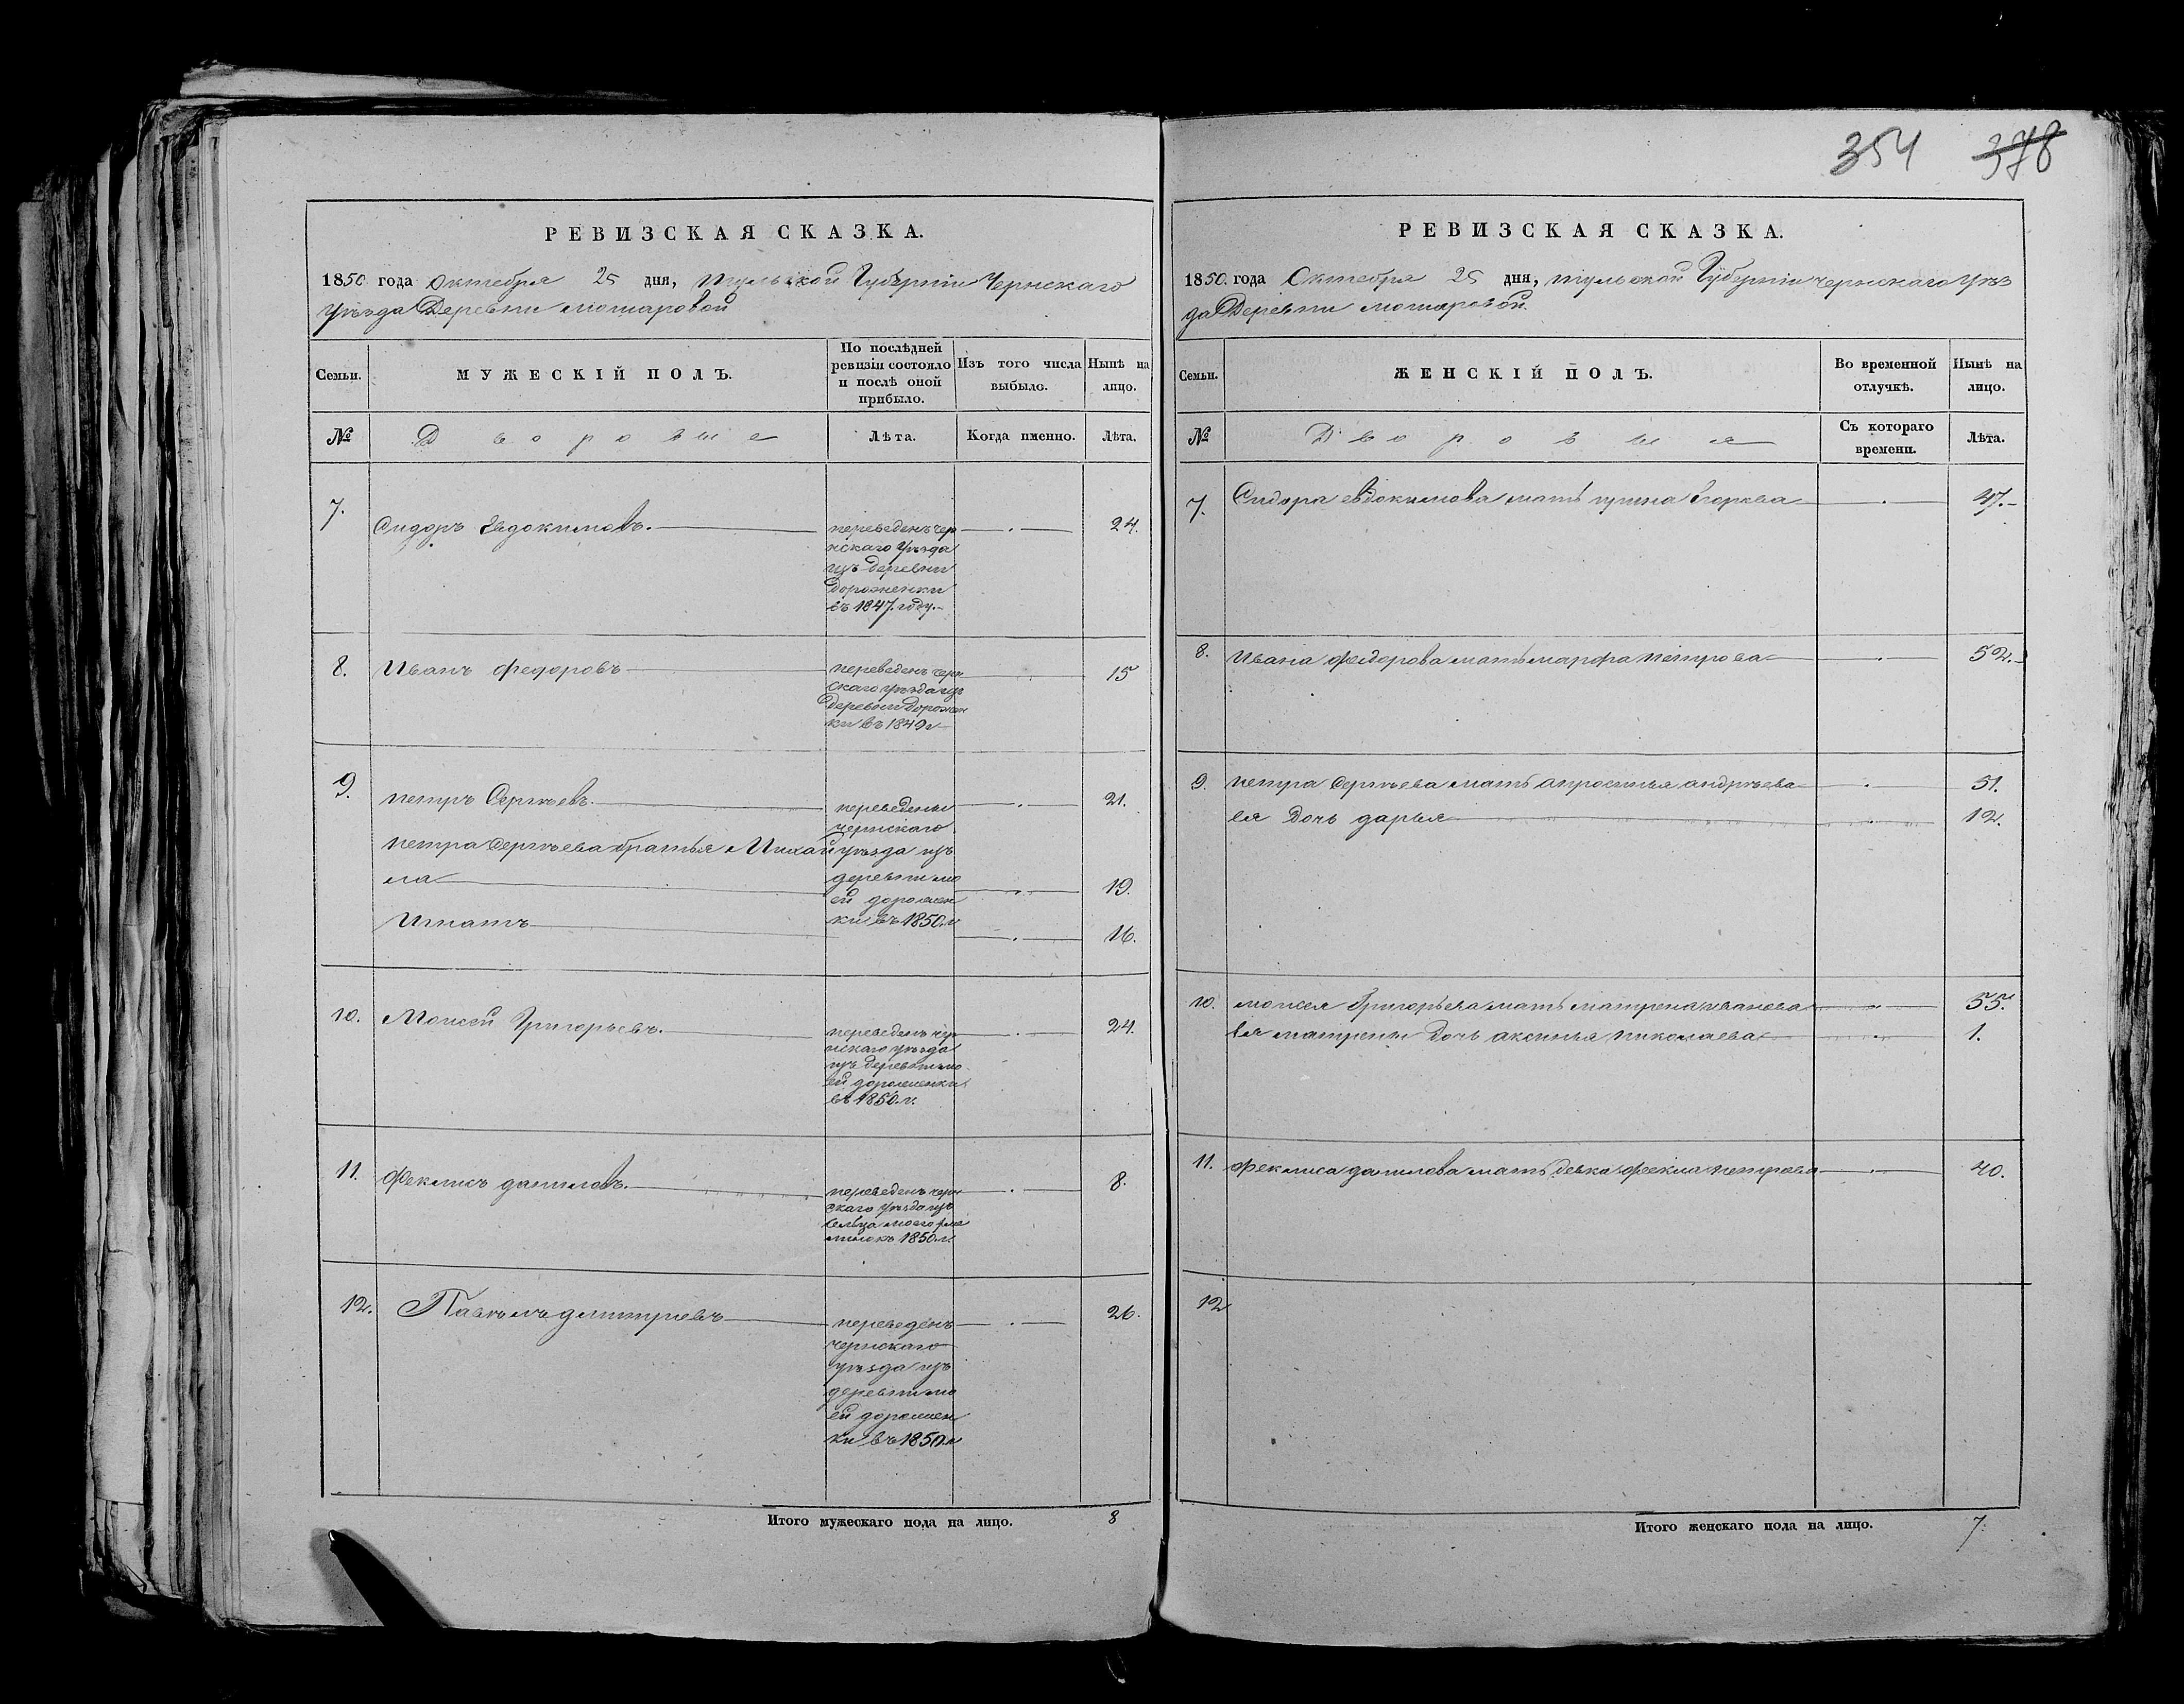 354 378
РЕВИЗСКАЯ СКАЗКА.
1850 года Октебря 25 дня, тульской Губернiи Чернскаго
уѣзда Деревни мошаровой
Семьи.
МУЖЕСКIЙ ПОЛЪ.
По послѣдней
ревизiи состояло
и послѣ оной
прибыло.
Изъ того числа
выбыло.
Нынѣ на
лицо.
№
Дворовые
Лѣта.
Когда именно.
Лѣта.
7.
Сидоръ Евдокимовъ.
переведенъ чер
нскаго уѣзда
изъ деревни
Дороженки
въ 1847. году.
24.
8.
Иванъ Федоровъ
переведенъ черн
скаго уѣзда изъ
Деревни Дорожен
ки въ 1849 г
15
9.
петръ Сергѣевъ.
переведены
чернскаго
уѣзда изъ
деревни мо
ей дорожен
ки въ 1850. г
21.
петра Сергѣева братья Михай
ла
19.
Игнатъ
16.
10.
Моисей Григорьевъ.
переведенъ чер
нскаго уѣзда
изъ деревни мо
ей дороженки
въ 1850. г.
24.
11.
Феклисъ даниловъ.
переведенъ черн
скаго уѣзда изъ
сельца моего
1850. г.
8.
12.
Павѣлъ дмитриевъ
переведенъ
чернскаго
уѣзда изъ
деревни мо
ей дорожен
ки въ 1850 г
26.
Итого мужескаго пола на лицо. 8
РЕВИЗСКАЯ СКАЗКА.
1850. года Октебря 25 дня, тульской Губернiи чернскаго уѣз
да Деревни мошаровой.
Семьи.
ЖЕНСКIЙ ПОЛЪ.
Во временной
отлучкѣ.
Нынѣ на
лицо.
№
Дворовыя
Съ котораго
времени.
Лѣта.
7.
Сидора евдокимова мать ирина Егорева
47.
8.
Ивана федорова мать марфа петрова
52.
9.
петра Сергѣева мать апросинья андрѣева
51.
ея Дочь дарья
12.
10.
моисея Григорьева мать матрена иванова
55.
Ея матрены Дочь аксинья николаева
1.
11.
феклиса данилова мать девка фекла петрова
40.
12
Итого женскаго пола на лицо. 7.